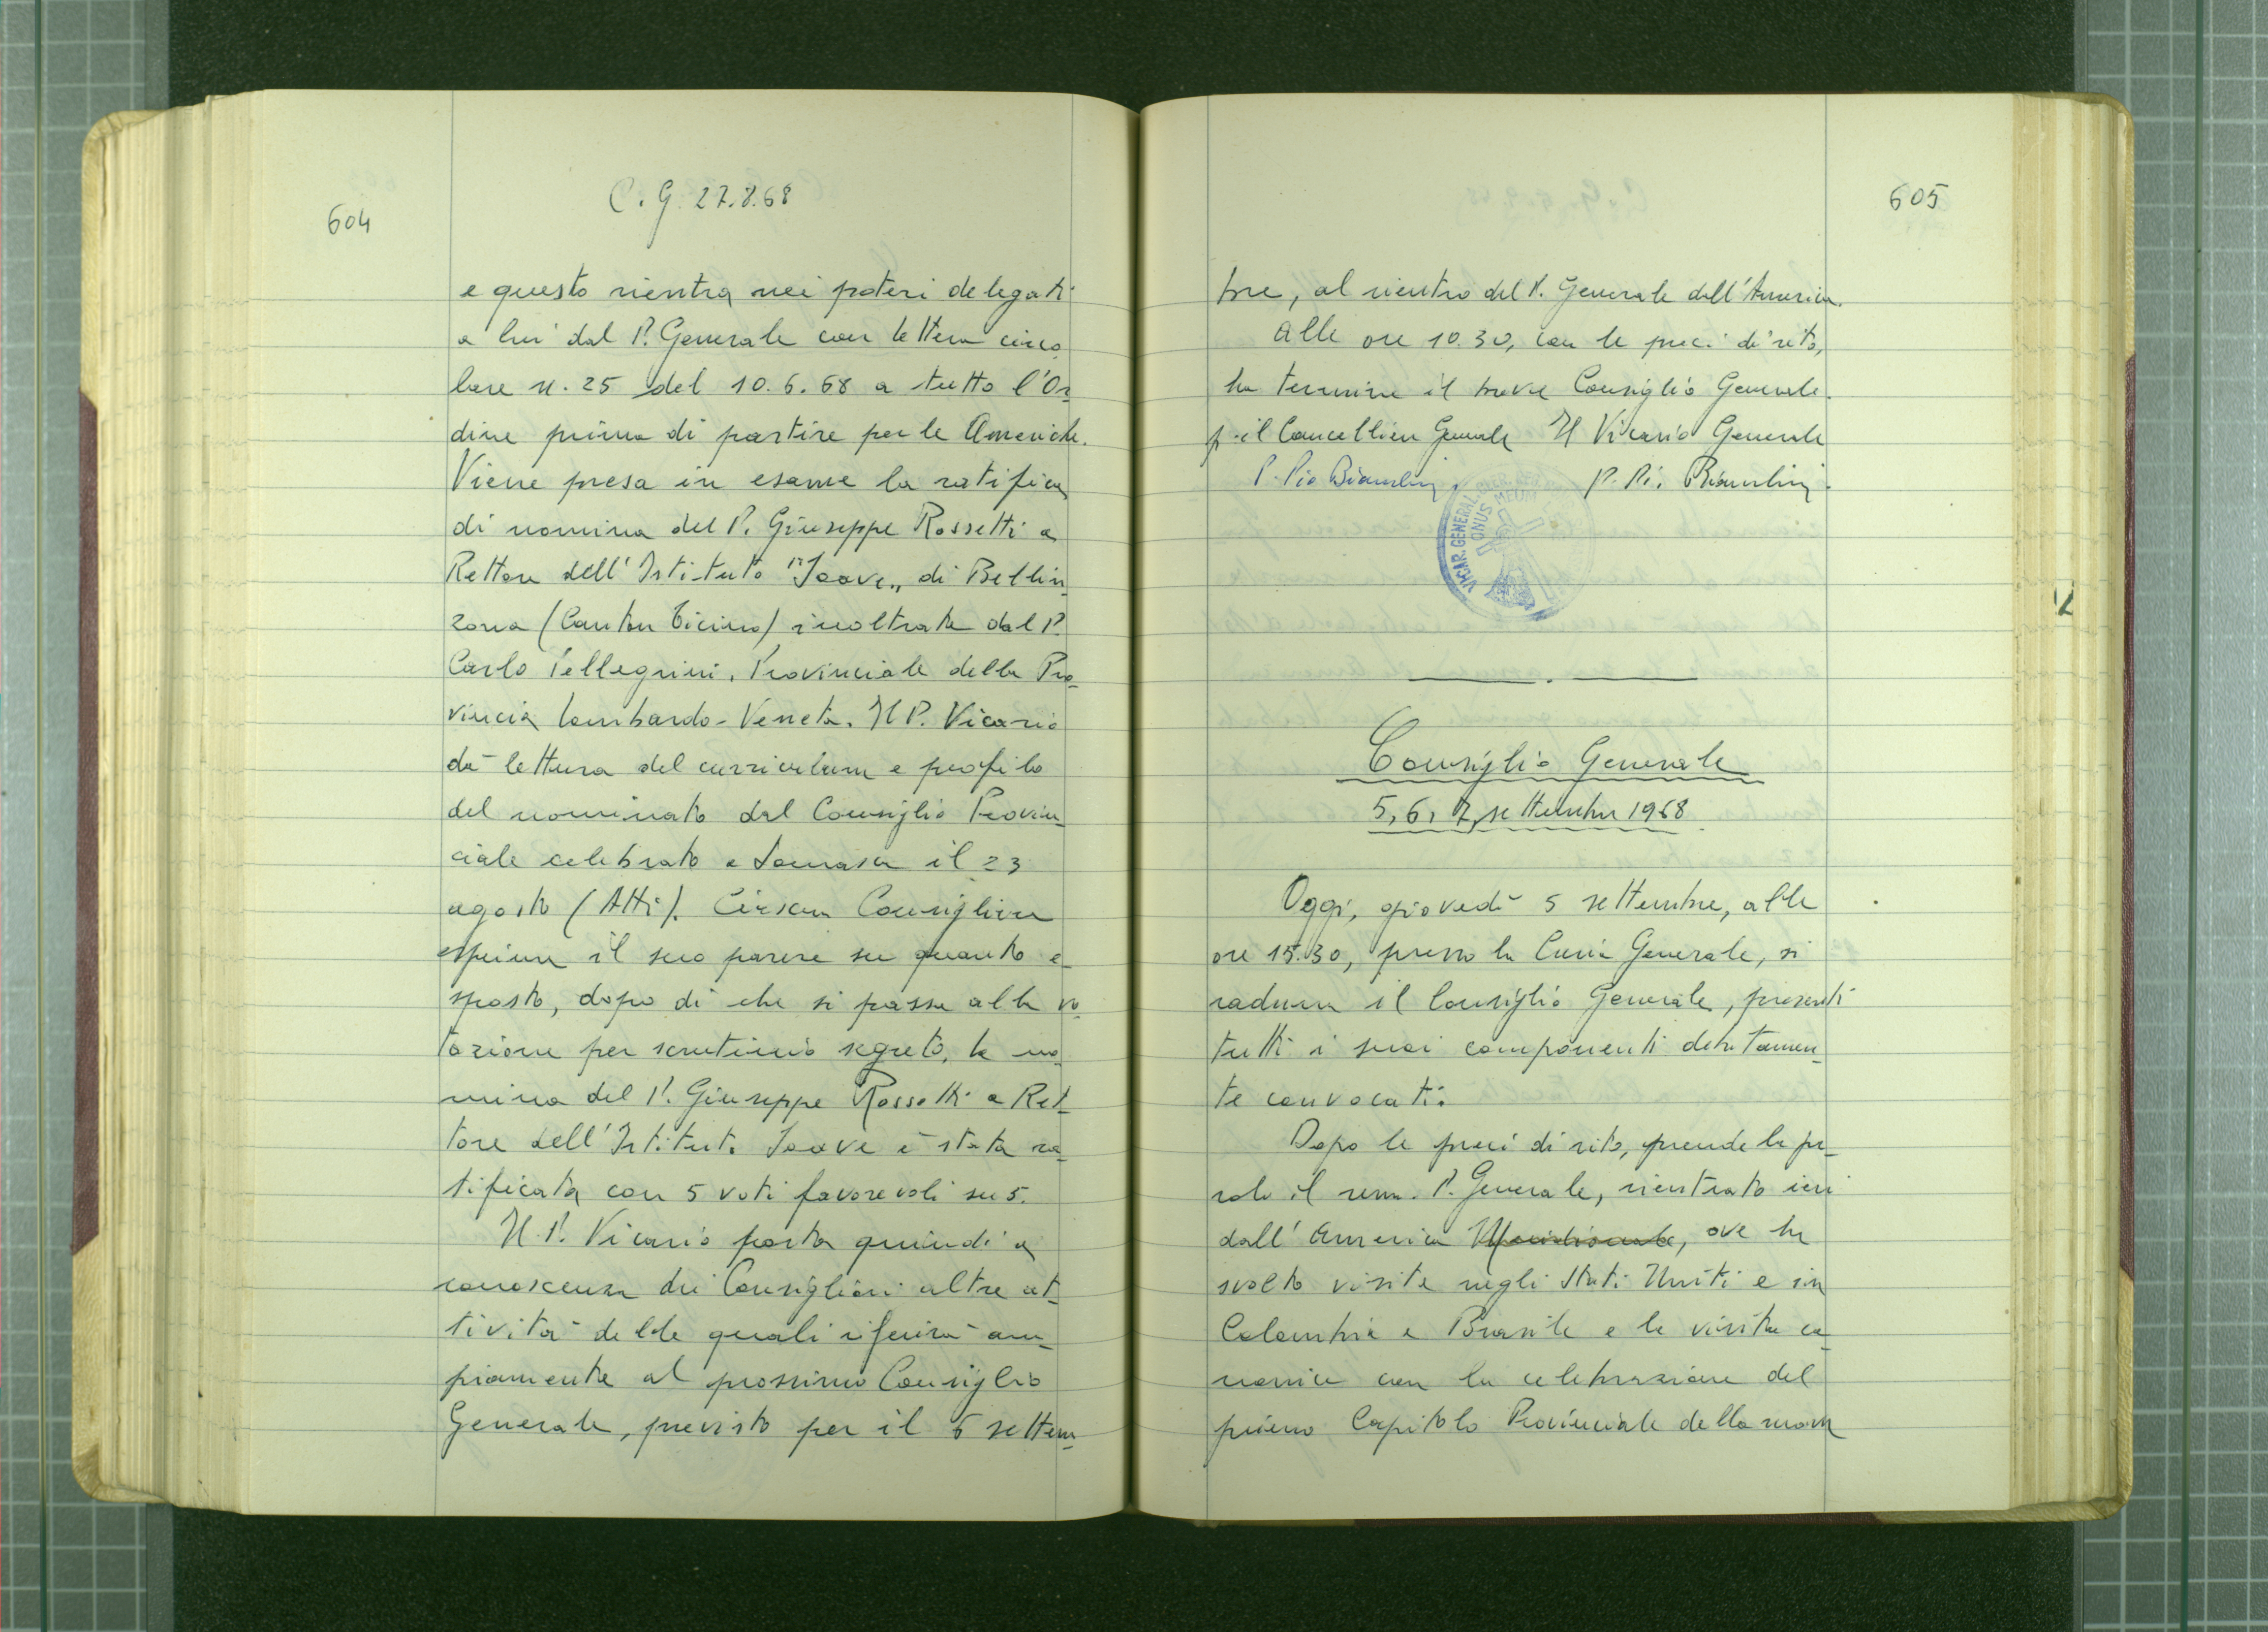 604
C.G. 27.8.68
e questo rientra nei poteri delegati
a lui dal P. Generale con lettera circo_
lare n. 25 del 10.6.68 a tutto l'Or_
dine prima di partire per le Americhe.
Viene presa in esame la ratifica
di nomina del P. Giuseppe Rossetti a
Rettore dell'Istituto "Soave„ di Bellin_
zona (Canton Ticino) inoltrata dal P.
Carlo Pellegrini, Provinciale della Pro_
vincia Lombardo-Veneta. Il P. Vicario
dà lettura del curriculum e profilo
del nominato dal Consiglio Provin_
ciale celebrato a Somasca il 23
agosto (Atti). Ciascun Consigliere
esprime il suo parere su quanto e_
sposto, dopo di che si passa alla vo_
tazione per scrutinio segreto, la no_
mina del P. Giuseppe Rossetti a Ret_
tore dell'Istituto Soave è stata ra_
tificata con 5 voti favorevoli su 5.
Il P. Vicario porta quindi a
conoscenza dei Consiglieri altre at_
tività delle quali riferirà am_
piamente al prossimo Consiglio
Generale, previsto per il 5 settem_
605
bre, al rientro del P. Generale dall'America.
Alle ore 10.30, con le preci di rito,
ha termine il breve Consiglio Generale.
p. il Cancelliere Generale Il Vicario Generale
P. Pio Bianchini P. Pio Bianchini.
VICAR. GENERAL.
ONUS MEUM
Consiglio Generale
5, 6, 7, settembre 1968
Oggi, giovedì 5 settembre, alle
ore 15.30, presso la Curia Generale, si
raduna il Consiglio Generale, presenti
tutti i suoi componenti debitamen_
te convocati.
Dopo le preci di rito, prende la pa_
rola il rev. P. Generale, rientrato ieri
dall'America Meridionale, ove ha
svolto visite negli Stati Uniti e in
Colombia e Brasile e la visita ca_
nonica con la celebrazione del
primo Capitolo Provinciale della nuova